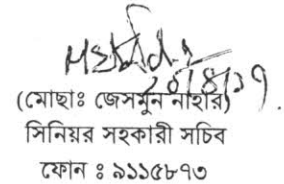 (মোছাঃ জেসমুন নাহার)
সিনিয়র সহকারী সচিব
ফোন ঃ ৯১১৫৮৭৩